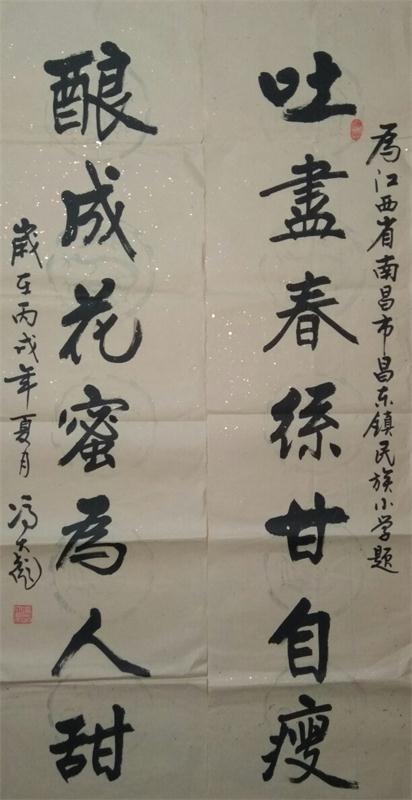 為江西省南昌市昌东镇民族小学題
吐盡春絲甘自瘦
酿成花蜜為人甜
歲在丙戌年夏月
冯大彪